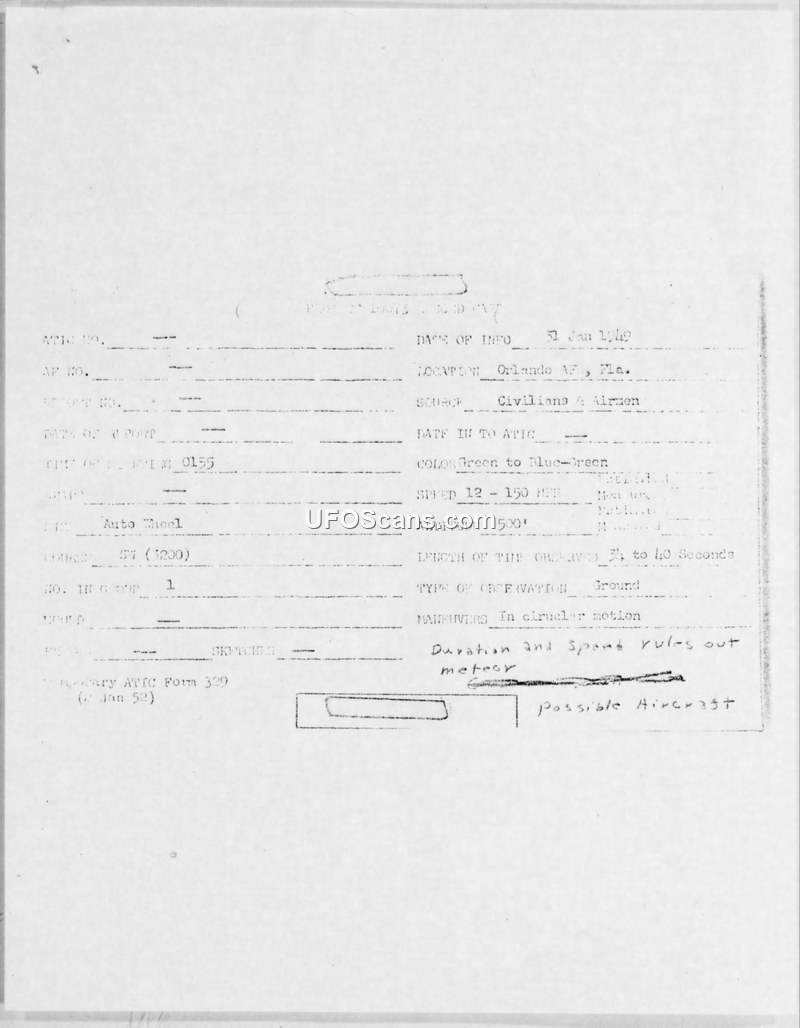 ATIC NO. —
AF NO. —
REPORT NO. —
DATE OF REPORT —
TIME OF SIGHTING 0155
SHAPE —
SIZE Auto Wheel
COURSE SW (3200)
NO. IN GROUP 1
SOUND —
PHOTOS — SKETCHES —
Temporary ATIC Form 329
(2 Jan 52)
DATE OF INFO 31 Jan 1949
LOCATION Orlando AF , Fla.
SOURCE Civilians & Airmen
DATE IN TO ATIC —
COLOR Green to Blue-Green
SPEED 12 - 150 MPH
Estimated
Measured
ALTITUDE 1500'
Estimated
Measured
LENGTH OF TIME OBSERVED 34 to 40 Seconds
TYPE OF OBSERVATION Ground
MANEUVERS In cirucler motion
Duration and Speed rules out
meteor
possible Aircraft
UFOScans.com